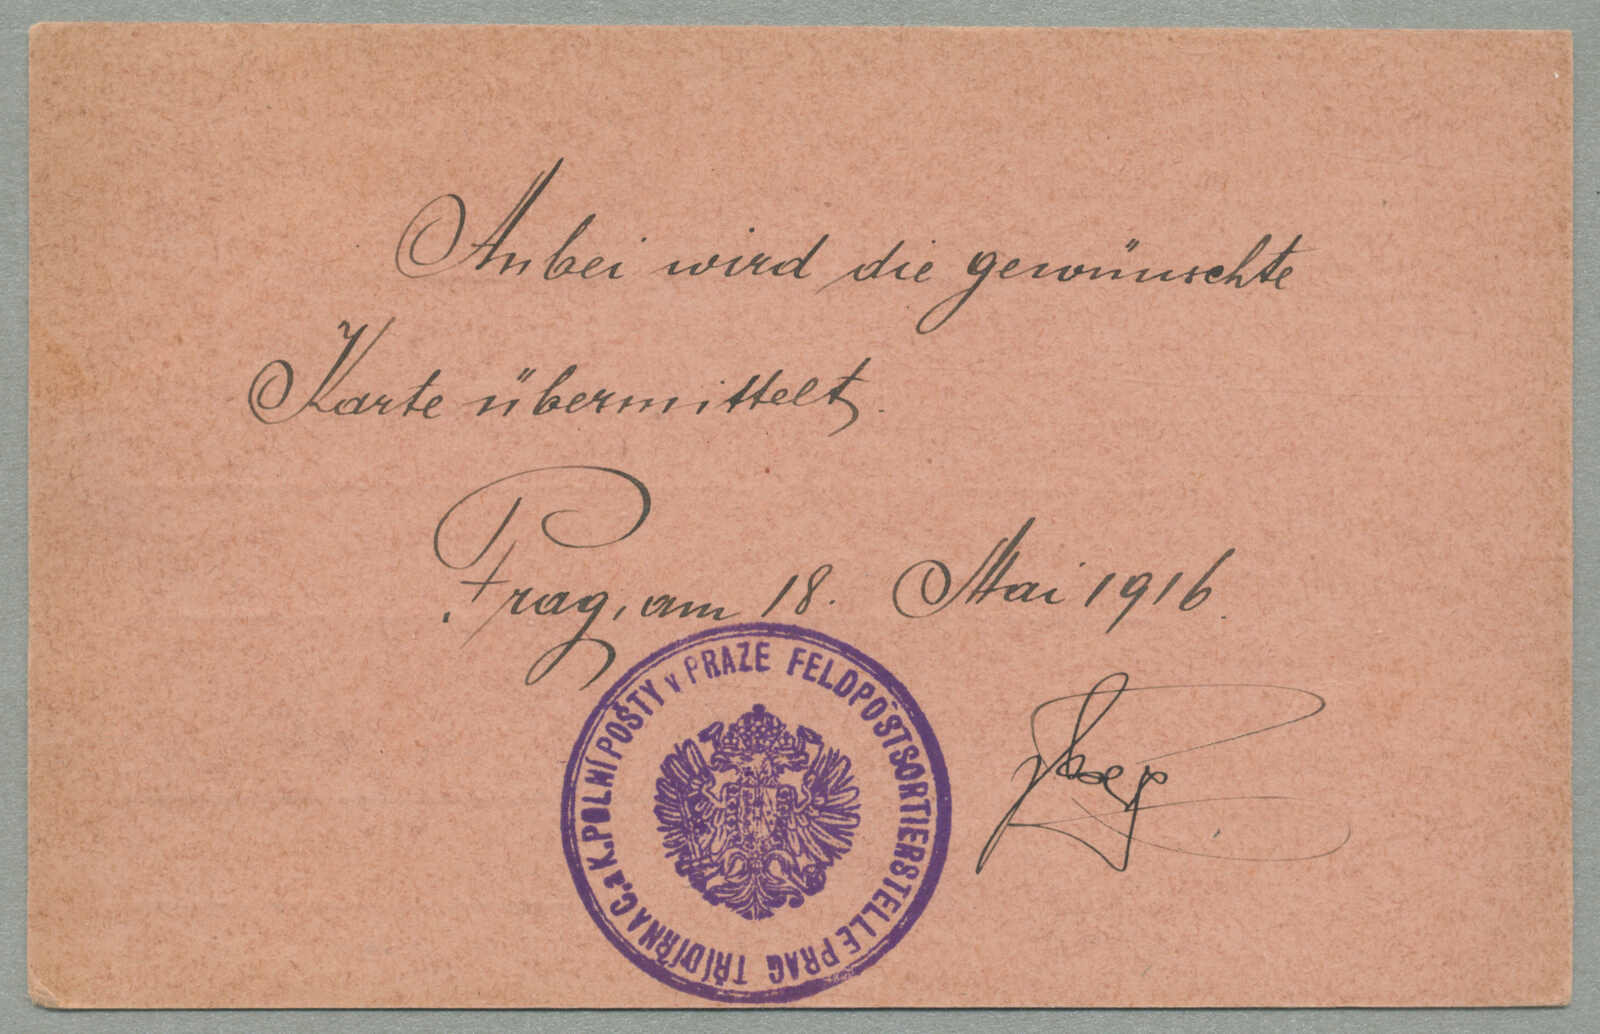 Anbei wird die gewünschte
Karte übermittelt.
Prag, am 18. Mai 1916.
FELDPOSTSORTIERSTELLE PRAG
TŘÍDÍRNA C. a K. POLNÍ POŠTY v PRAZE